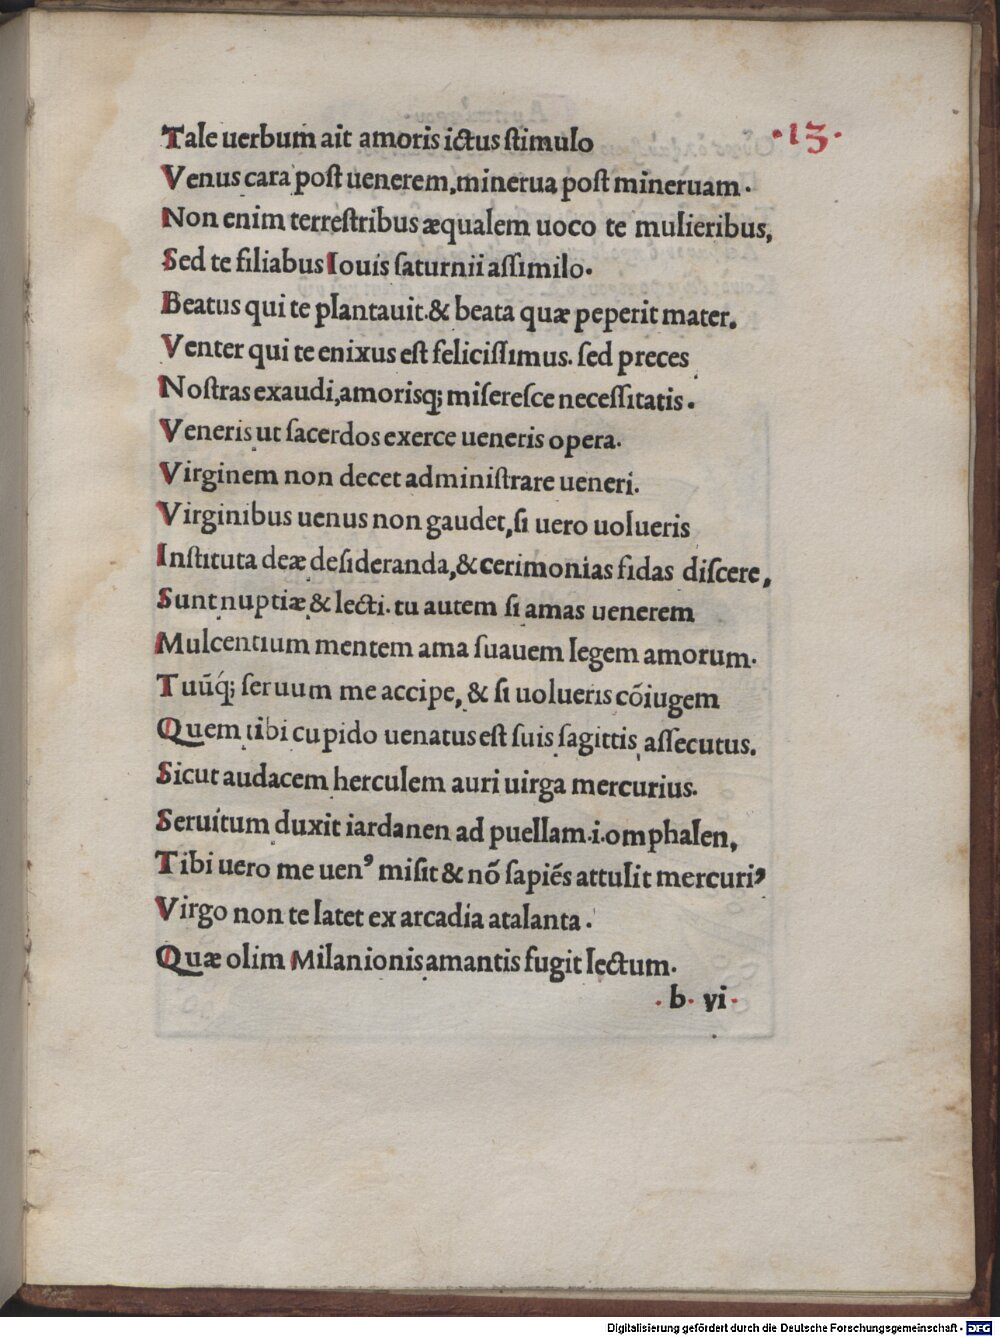 Tale uerbum ait amoris ictus ſtimulo
·13·
Venus cara poſt uenerem,minerua poſt mineruam.
Non enim terreſtribus æqualem uoco te mulieribus,
Sed te filiabus Iouis ſaturnii aſſimilo.
Beatus qui te plantauit.& beata quæ peperit mater.
Venter qui te enixus eſt feliciſſimus. ſed preces
Noſtras exaudi,amorisq; miſereſce neceſſitatis.
Veneris ut ſacerdos exerce ueneris opera.
Virginem non decet adminiſtrare ueneri.
Virginibus uenus non gaudet,ſi uero uolueris
Inſtituta deæ deſideranda,& cerimonias fidas diſcere,
Sunt nuptiæ & lecti. tu autem ſi amas uenerem
Mulcentium mentem ama ſuauem legem amorum.
Tuūq́; ſeruum me accipe, & ſi uolueris cōiugem
Quem tibi cupido uenatus eſt ſuis ſagittis aſſecutus.
Sicut audacem herculem auri uirga mercurius.
Seruitum duxit iardanen ad puellam.i.omphalen,
Tibi uero me uenꝰ miſit & nō ſapiēs attulit mercuriꝰ
Virgo non te latet ex arcadia atalanta.
Quæ olim Milanionis amantis fugit lectum.
·b·vi·
Digitalisierung gefördert durch die Deutsche Forschungsgemeinschaft - DFG